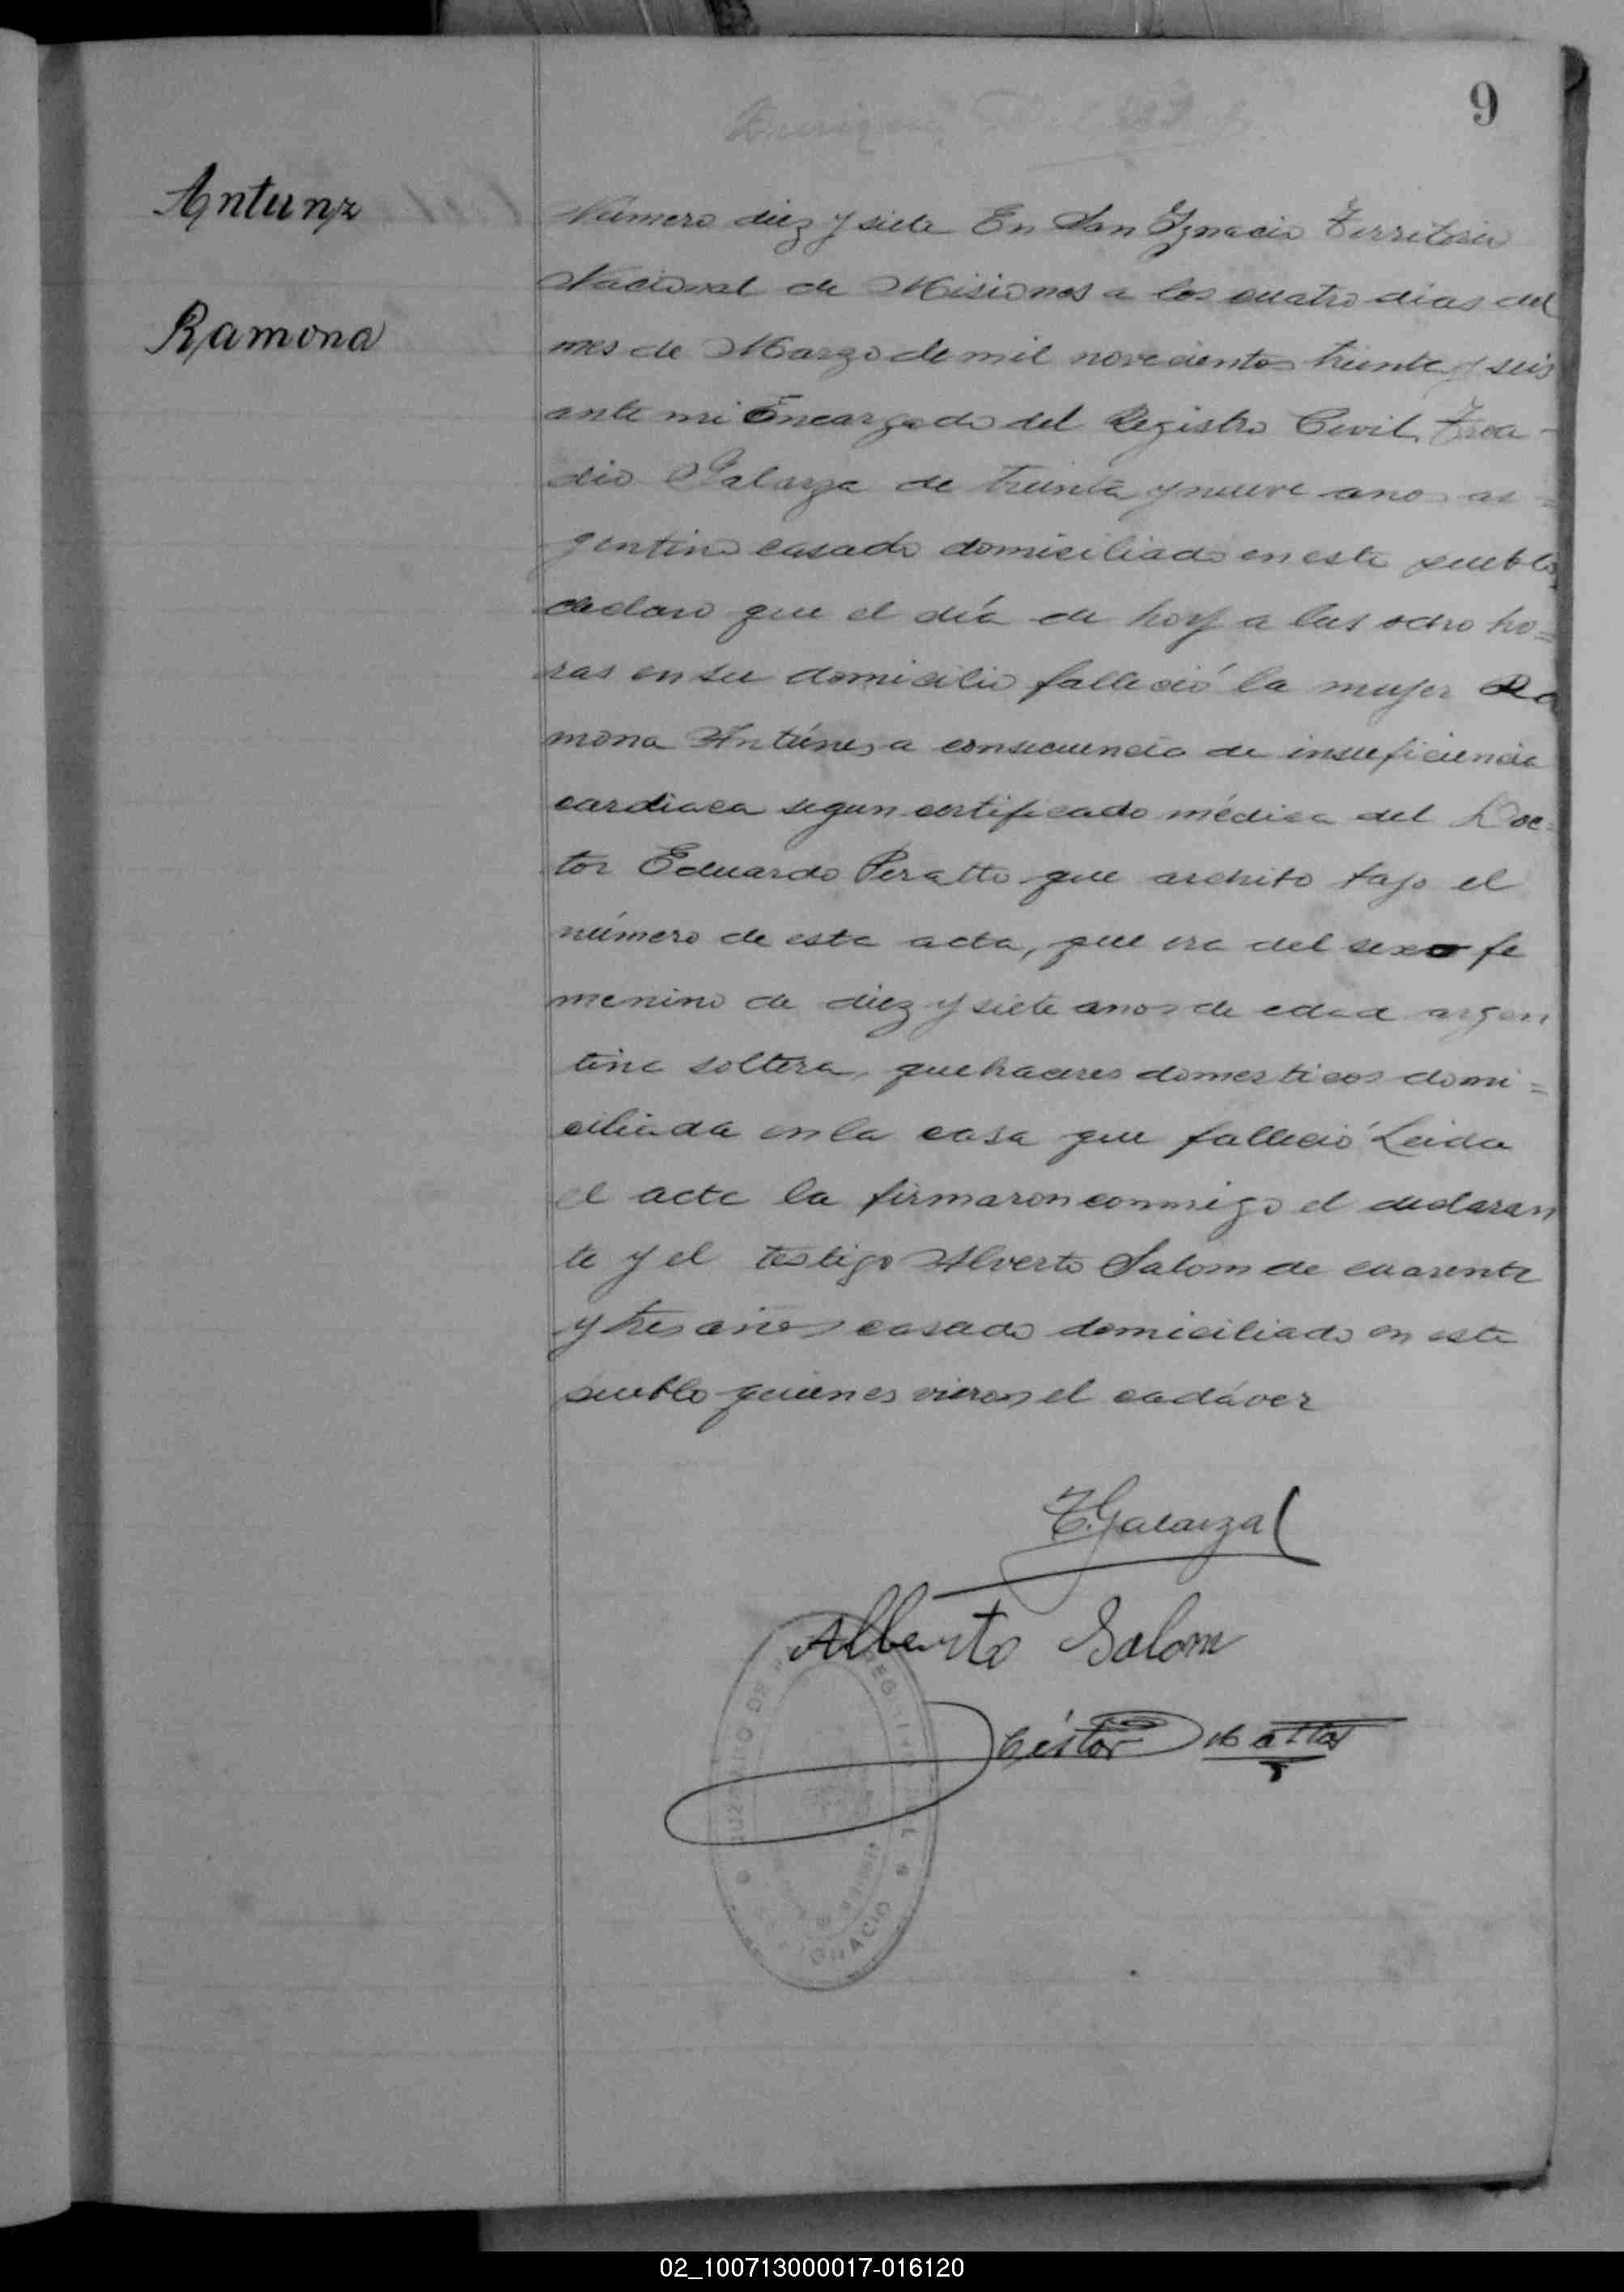 9
Antunz
Ramona
Número diez y siete En San Ygnacio Territorio
Nacional de Misiones a los cuatro dias del
mes de Marzo de mil novecientos treinta y seis
ante mi Encargado del Registro Civil, Troa-
dio Galarza de treinta y nueve anos ar=
gentino casado domiciliado en este pueblo
declaro que el día de hoy a las ocho ho=
ras en su domicilio falleció la mujer Ra
mona Antúnes a consecuencia de insuficiencia
cardiaca segun certificado médica del Doc=
tor Eduardo Peratto que archito bajo el
número de esta acta, que era del sexo fe
menino de diez y siete anos de edad argen
tina soltera, quehaceres domesticos domi=
ciliada en la casa que falleció Leida
el acta la firmaron conmigo el declaran
te y el testigo Alverto Salom de cuarenta
y tres años casado domiciliado en este
pueblo quienes vieron el cadáver
T. Galarza
Alberto Salom
IGNACIO
02_100713000017-016120